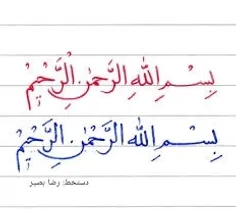 بِسْمِ اللهِ الرَّحْمٰنِ الرَّحِيْمِ
بِسْمِ اللهِ الرَّحْمٰنِ الرَّحِيْمِ
دستخط: رضا بصیر